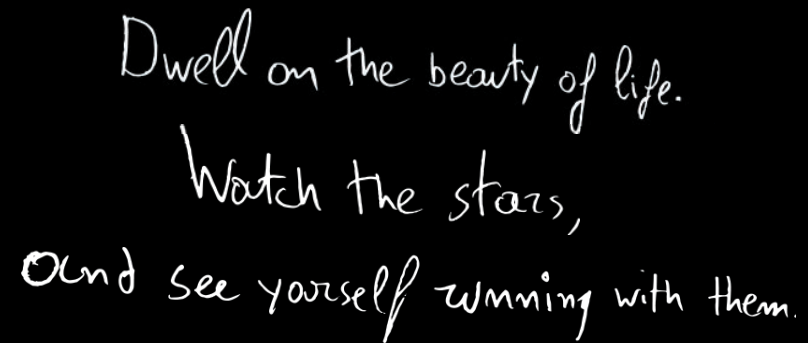 Dwell on the beauty of life.
Watch the stars,
and see yourself running with them.